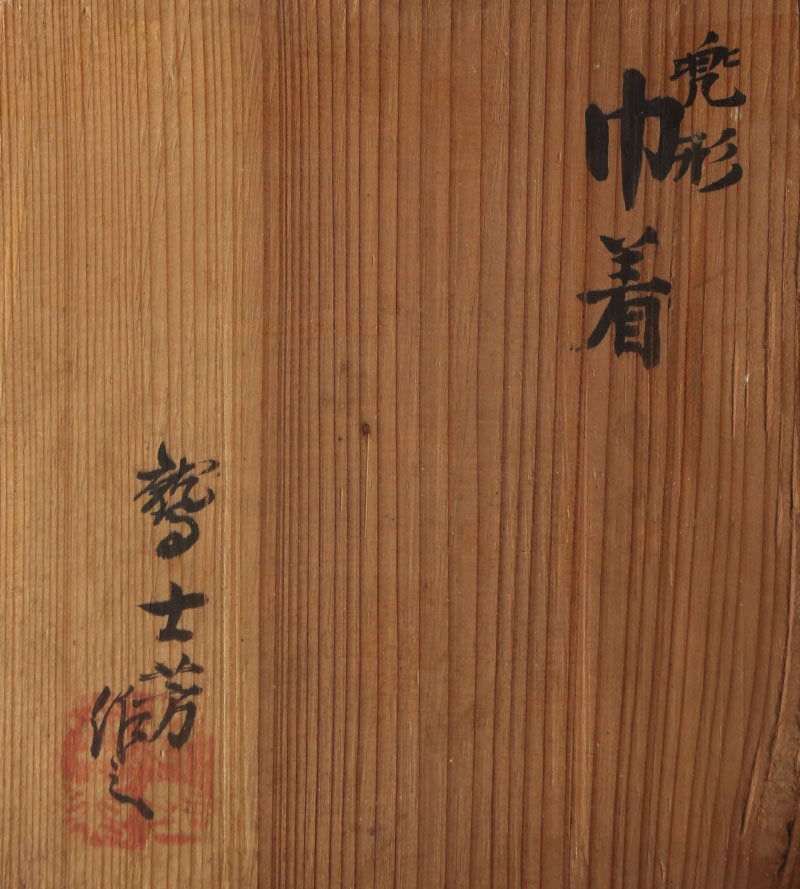 兜形
巾着
鷲士芳
作之